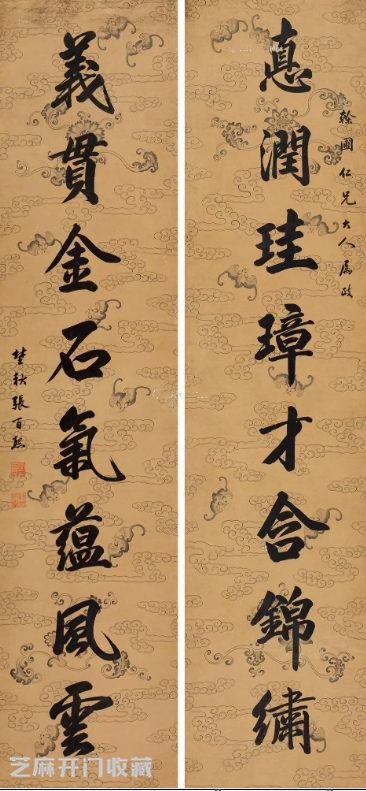 翰圃仁兄大人屬政
悳潤珪璋才含錦繡
義貫金石氣蘊風雲
埜秋張百熙
芝麻开门收藏